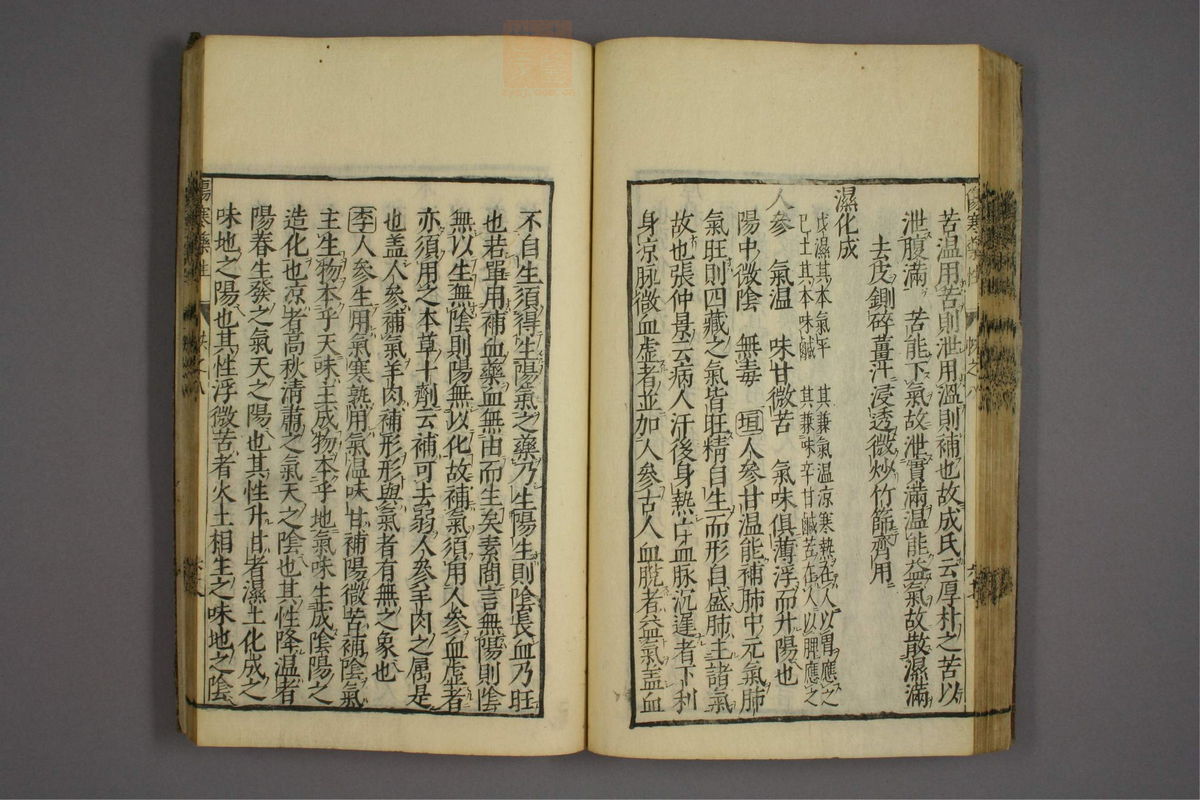 苦温用苦則泄用温則補也故成氏云厚朴之苦以
泄腹滿　苦能下氣故泄實滿温能益氣故散濕滿
去皮剉碎薑汁浸透微炒竹篩齊用
濕化成
戊濕其本氣平　其兼氣温凉寒熱在人以胃應之
巳土其本味鹹　其兼味辛甘鹹苦在人以脾應之
人參　氣温　味甘微苦　氣味俱薄浮而升陽也
陽中微陰　無毒　垣人參甘温能補肺中元氣肺
氣旺則四藏之氣皆旺精自生而形自盛肺主諸氣
故也張仲景云病人汗後身熱亡血脉沉遲者下利
身凉脉微血虛者並加人參古人血脱者益氣盖血
不自生須得生陽氣之藥乃生陽生則陰長血乃旺
也若單用補血藥血無由而生矣素問言無陽則陰
無以生無陰則陽無以化故補氣須用人參血虛者
亦須用之本草十劑云補可去弱人參羊肉之属是
也盖人參補氣羊肉補形形與氣者有無之象也
李人參生用氣寒熟用氣温味甘補陽微苦補陰氣
主生物本乎天味主成物本乎地氣味生成陰陽之
造化也凉者高秋淸肅之氣天之陰也其性降温者
陽春生發之氣天之陽也其性升甘者濕土化成之
味地之陽也其性浮微苦者火土相生之味地之陰
傷寒藥性